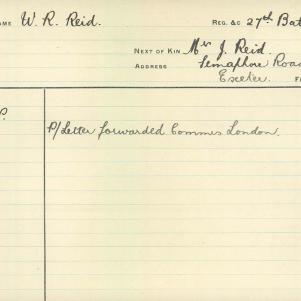 AME W. R. Reid. REG. &C 27th Bat
NEXT OF KIN Mr J. Reid.
ADDRESS Semaphore Road
Exeter.
P/Letter forwarded Commrs London.